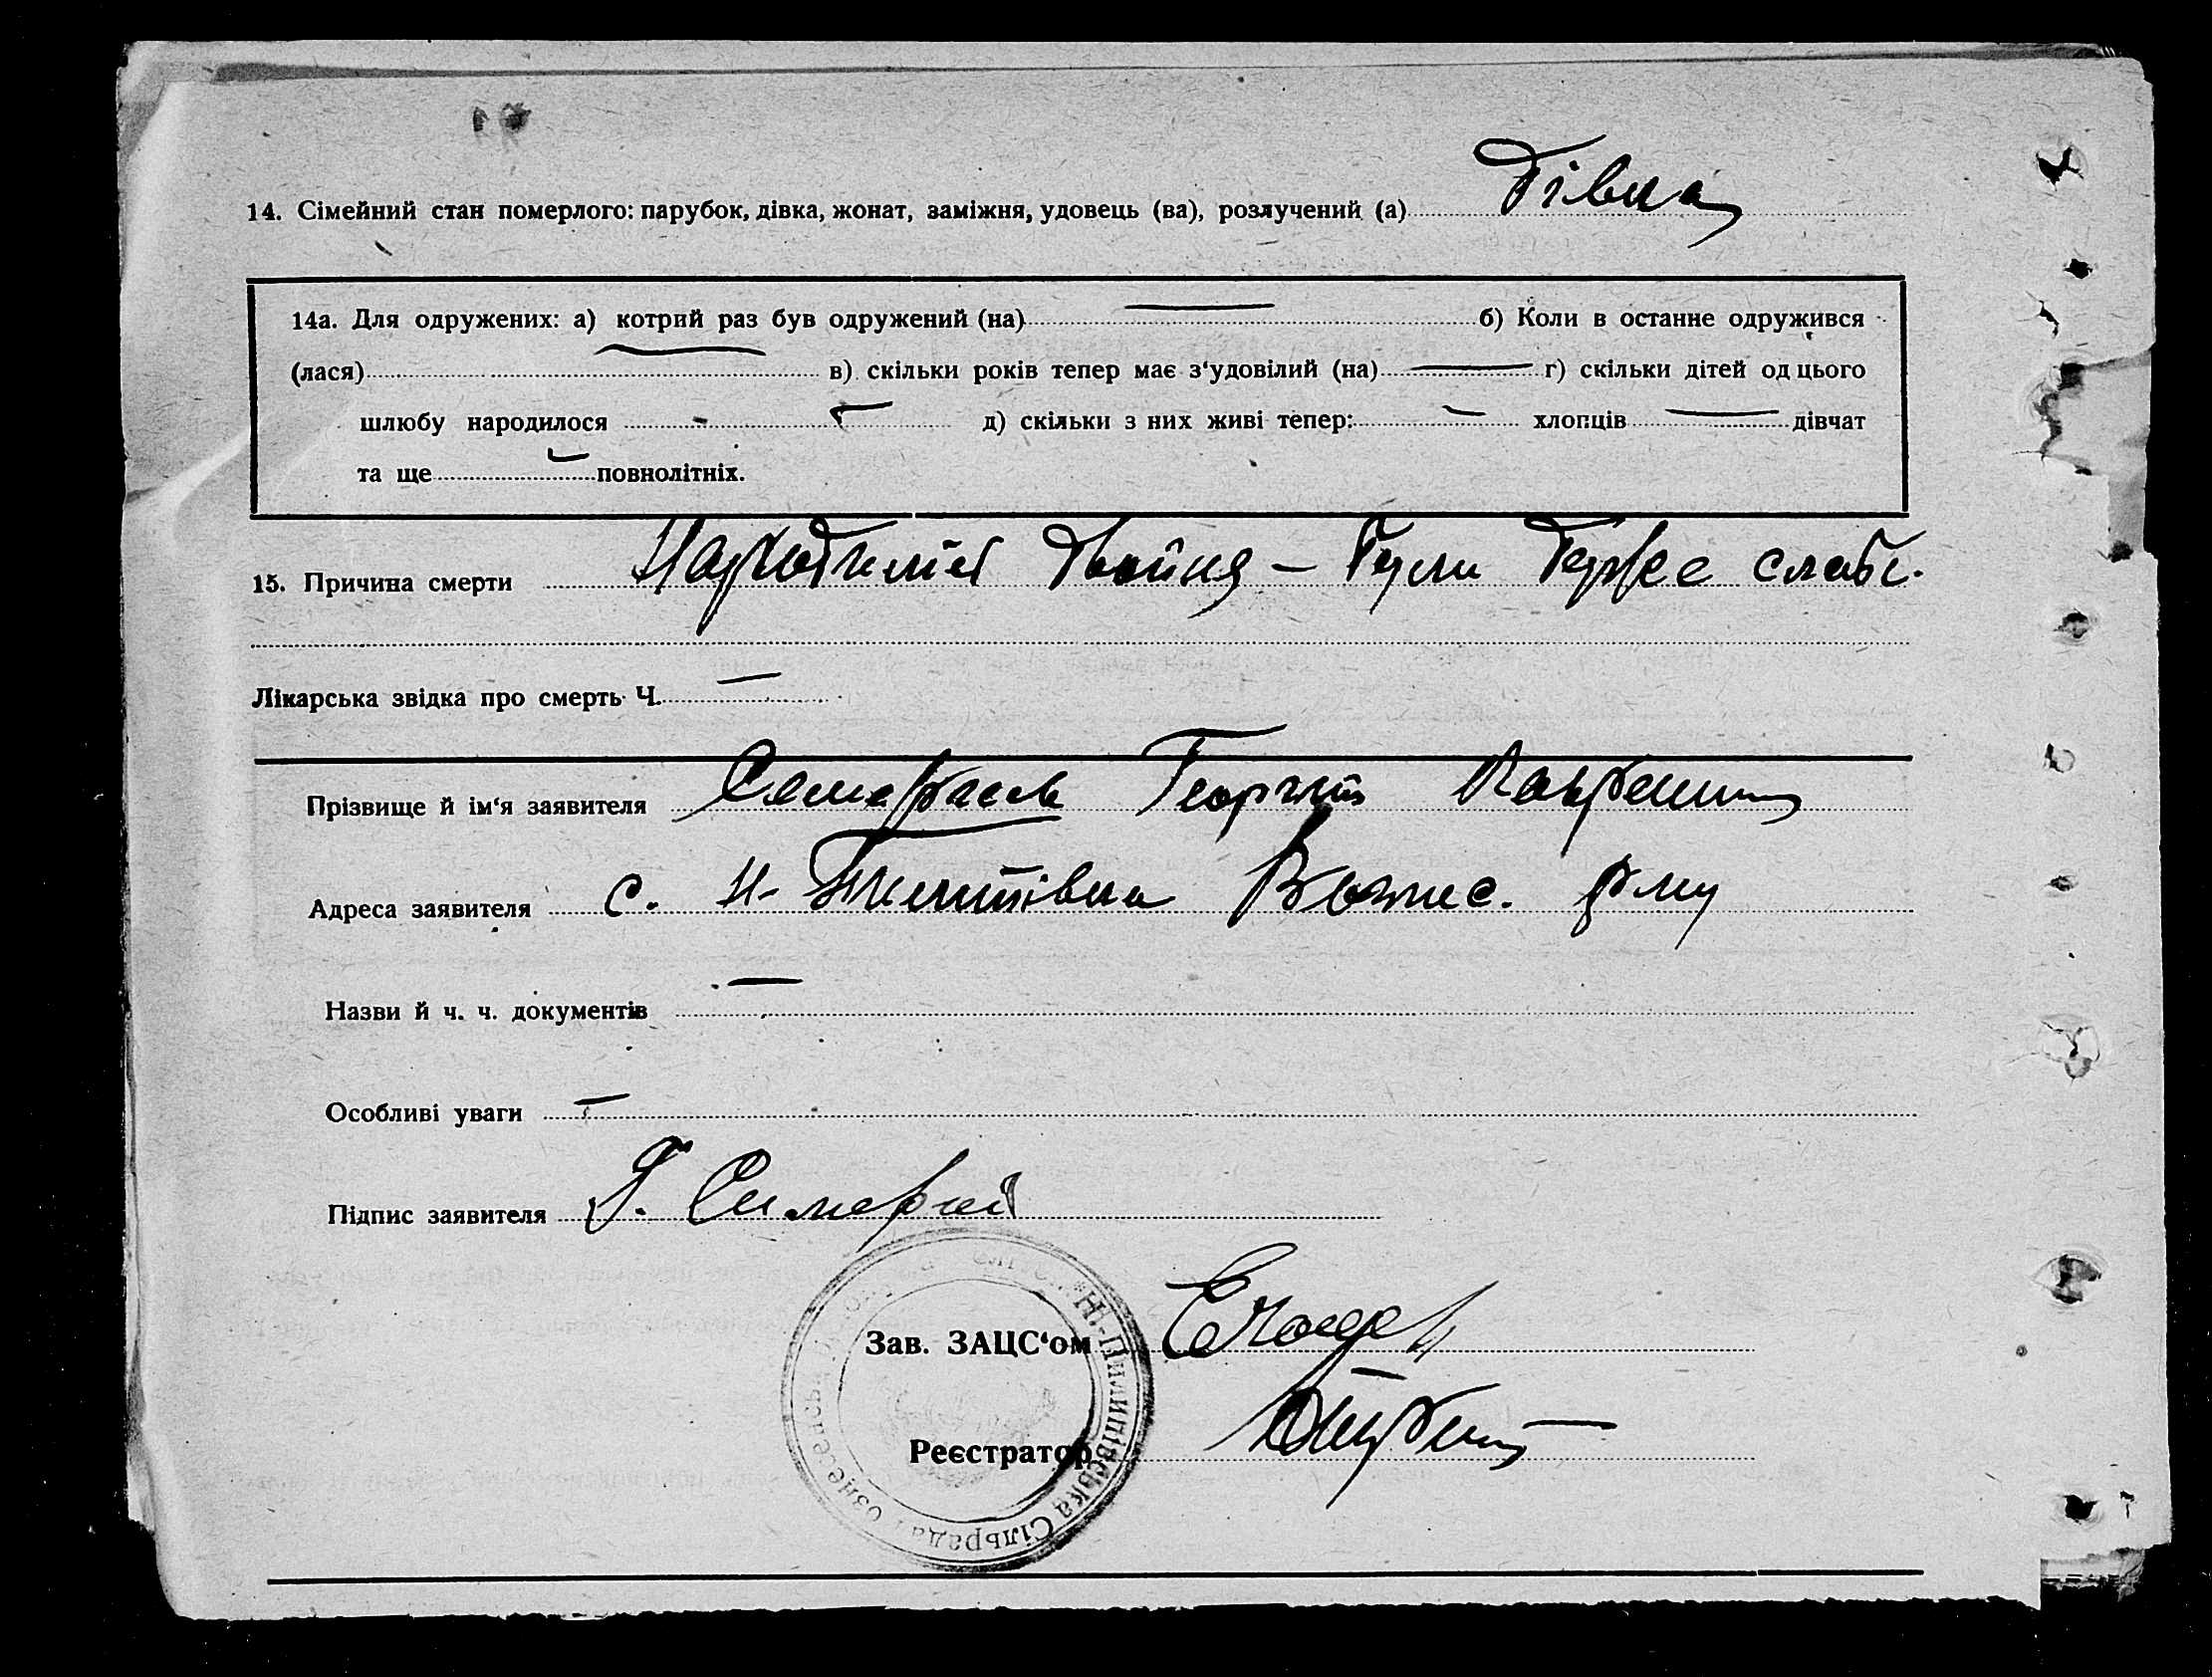 14. Сімейний стан померлого: парубок, дівка, жонат, заміжня, удовець (ва), розлучений (а) Дівка
14а. Для одружених: а) котрий раз був одружений (на) — б) Коли в останнє одружився
(лася) — в) скільки років тепер має з'удовілий (на) — г) скільки дітей од цього
шлюбу народилося — д) скільки з них живі тепер: — хлопців — дівчат
та ще — повнолітніх.
15. Причина смерти Народилися двойня – були дуже слабі.
Лікарська звідка про смерть Ч. —
Прізвище й ім'я заявителя Георгій
Адреса заявителя с. Н-Пилипівка Вознес. р-ну
Назви й ч. ч. документів —
Особливі уваги —
Підпис заявителя Г.
Зав. ЗАЦС'ом
Реєстратор
Н.-Пилипівська Сільрада